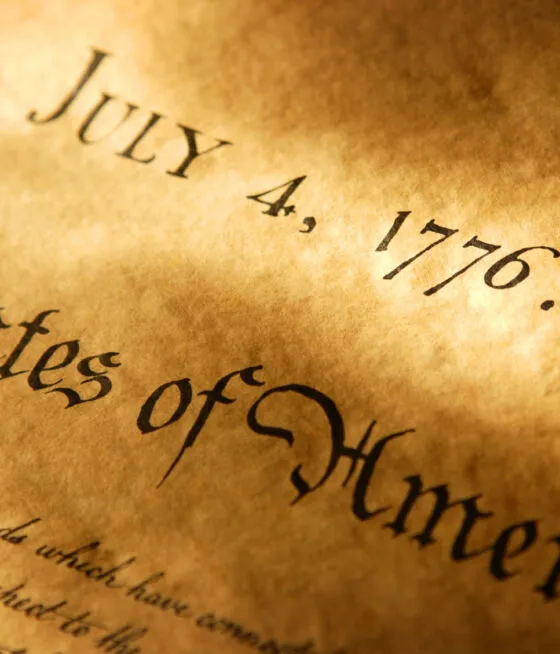 JULY 4, 1776.
tes of Amer
ds which have connect
pect to the